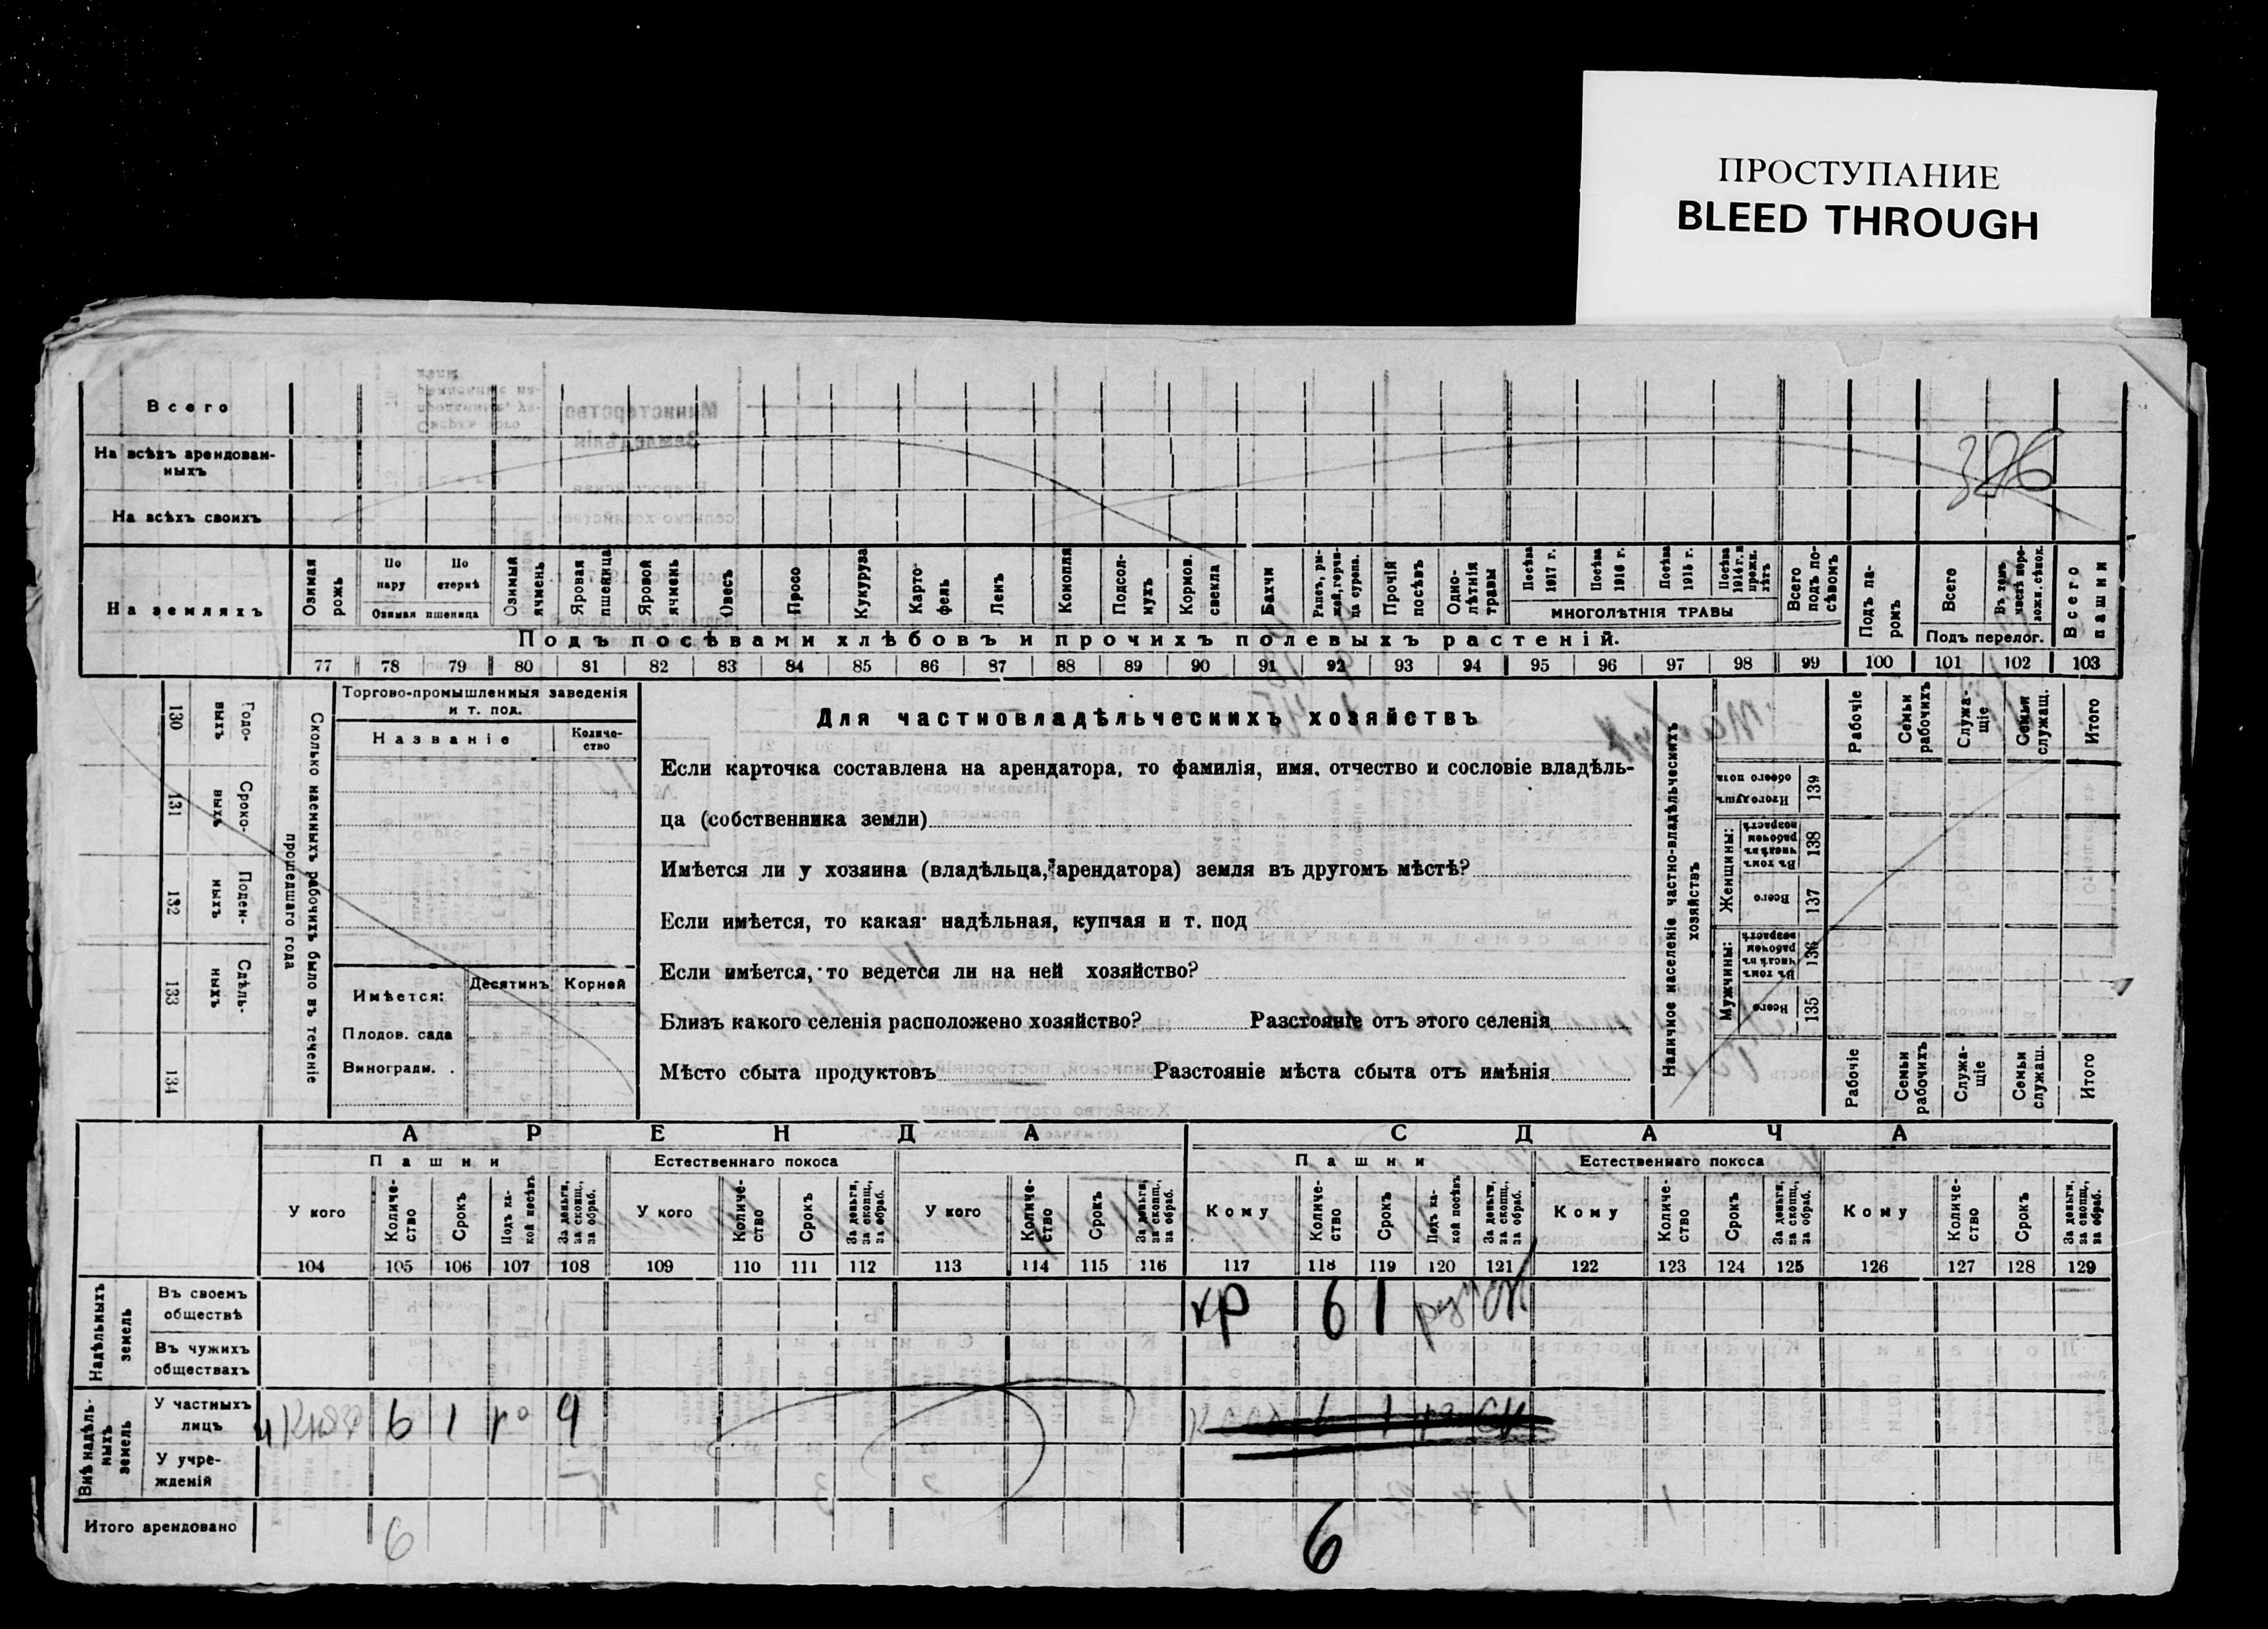 ПРОСТУПАНИЕ
BLEED THROUGH
Всего
На всѣхъ арендован-
ныхъ
326
На всѣхъ своихъ
На земляхъ
Озимая рожь
По пару
По стернѣ
Озимая пшеница
Озимый ячмень
Яровая пшеница
Яровой ячмень
Овесъ
Просо
Кукуруза
Карто-
фель
Ленъ
Конопля
Подсол-
нухъ
Кормов. свекла
Бахчи
Рапсъ, ры-
жей, горчи-
ца сурепа.
Прочій посѣвъ
Одно-
лѣтнія травы
Посѣва 1917 г.
Посѣва 1916 г.
Посѣва 1915 г.
Посѣва 1914 г. и прежн. лѣтъ
МНОГОЛѢТНІЯ ТРАВЫ
Всего подъ по-
сѣвомъ
Подъ па-
ромъ
Всего
Въ томъ числѣ пере-
ложн. сѣнок.
Подъ перелог.
Всего пашни
Подъ посѣвами хлѣбовъ и прочихъ полевыхъ растеній.
77 78 79 80 81 82 83 84 85 86 87 88 89 90 91 92 93 94 95 96 97 98 99 100 101 102 103
130 Годо-
выхъ
131 Сроко-
выхъ
132 Поден-
ныхъ
133 Сдѣль-
ныхъ
134
Сколько наемныхъ рабочихъ было въ теченіе
прошедшаго года
Торгово-промышленныя заведенія
и т. под.
Названіе
Количе-
ство
Имѣется:
Десятинъ
Корней
Плодов. сада
Виноградн. .
Для частновладѣльческихъ хозяйствъ
Если карточка составлена на арендатора, то фамилія, имя, отчество и сословіе владѣль-
ца (собственника земли)
Имѣется ли у хозяина (владѣльца, арендатора) земля въ другомъ мѣстѣ?
Если имѣется, то какая: надѣльная, купчая и т. под
Если имѣется, то ведется ли на ней хозяйство?
Близъ какого селенія расположено хозяйство? Разстояніе отъ этого селенія
Мѣсто сбыта продуктовъ Разстояніе мѣста сбыта отъ имѣнія
Наличное населеніе частно-владѣльческихъ
хозяйствъ
Итого душъ обоего пола 139
Женщины:
Въ томъ числѣ въ рабочемъ возрастѣ 138
Всего 137
Мужчины:
Въ томъ числѣ въ рабочемъ возрастѣ 136
Всего 135
Рабочіе
Семьи рабочихъ
Служа-
щіе
Семьи служащ.
Итого
Рабочіе
Семьи рабочихъ
Служа-
щіе
Семьи служащ.
Итого
АРЕНДА
СДАЧА
Пашни
Естественнаго покоса
Пашни
Естественнаго покоса
У кого
Количе-
ство
Срокъ
Подъ ка-
кой посѣвъ
За деньги, за скопщ., за обраб.
У кого
Количе-
ство
Срокъ
За деньги, за скопщ., за обраб.
У кого
Количе-
ство
Срокъ
За деньги, за скопщ., за обраб.
Кому
Количе-
ство
Срокъ
Подъ ка-
кой посѣвъ
За деньги, за скопщ., за обраб.
Кому
Количе-
ство
Срокъ
За деньги, за скопщ., за обраб.
Кому
Количе-
ство
Срокъ
За деньги, за скопщ., за обраб.
104 105 106 107 108 109 110 111 112 113 114 115 116 117 118 119 120 121 122 123 124 125 126 127 128 129
Надѣльныхъ земель
Въ своемъ
обществѣ
кр 6 1
Въ чужихъ
обществахъ
Внѣ надѣль-
ныхъ земель
У частныхъ
лицъ
6 1
У учре-
жденій
Итого арендовано
6 6